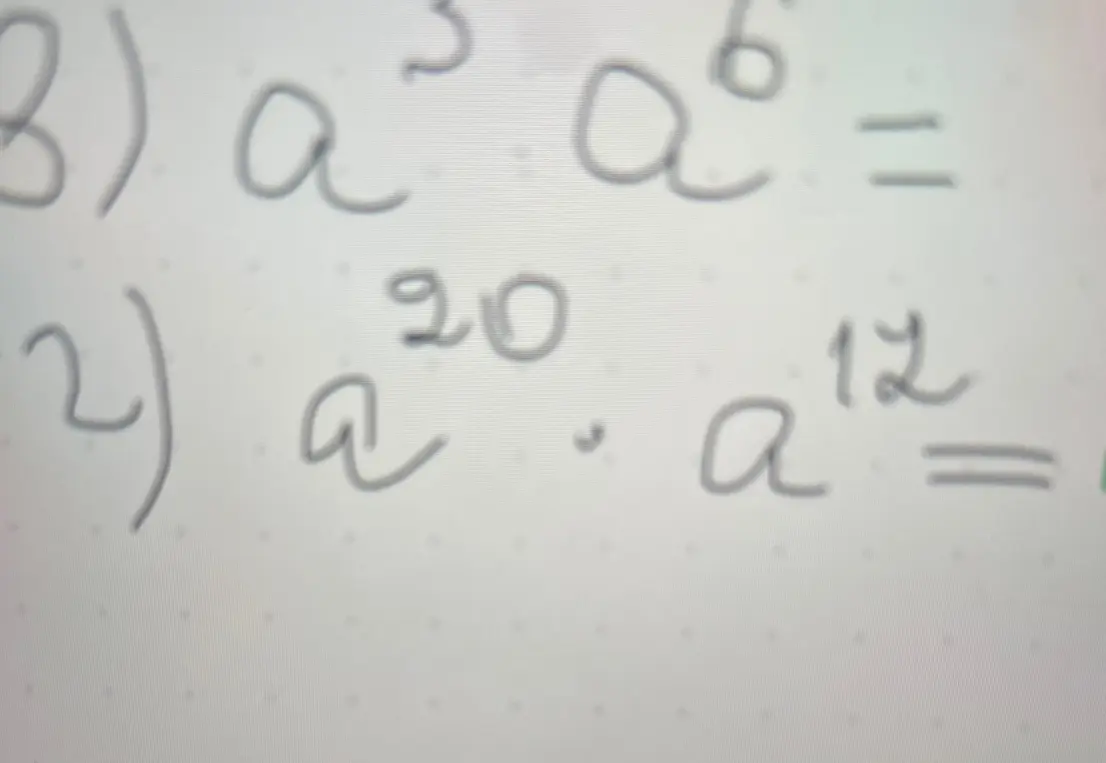 в) a³ a⁶ =
г) a²⁰ · a¹² =